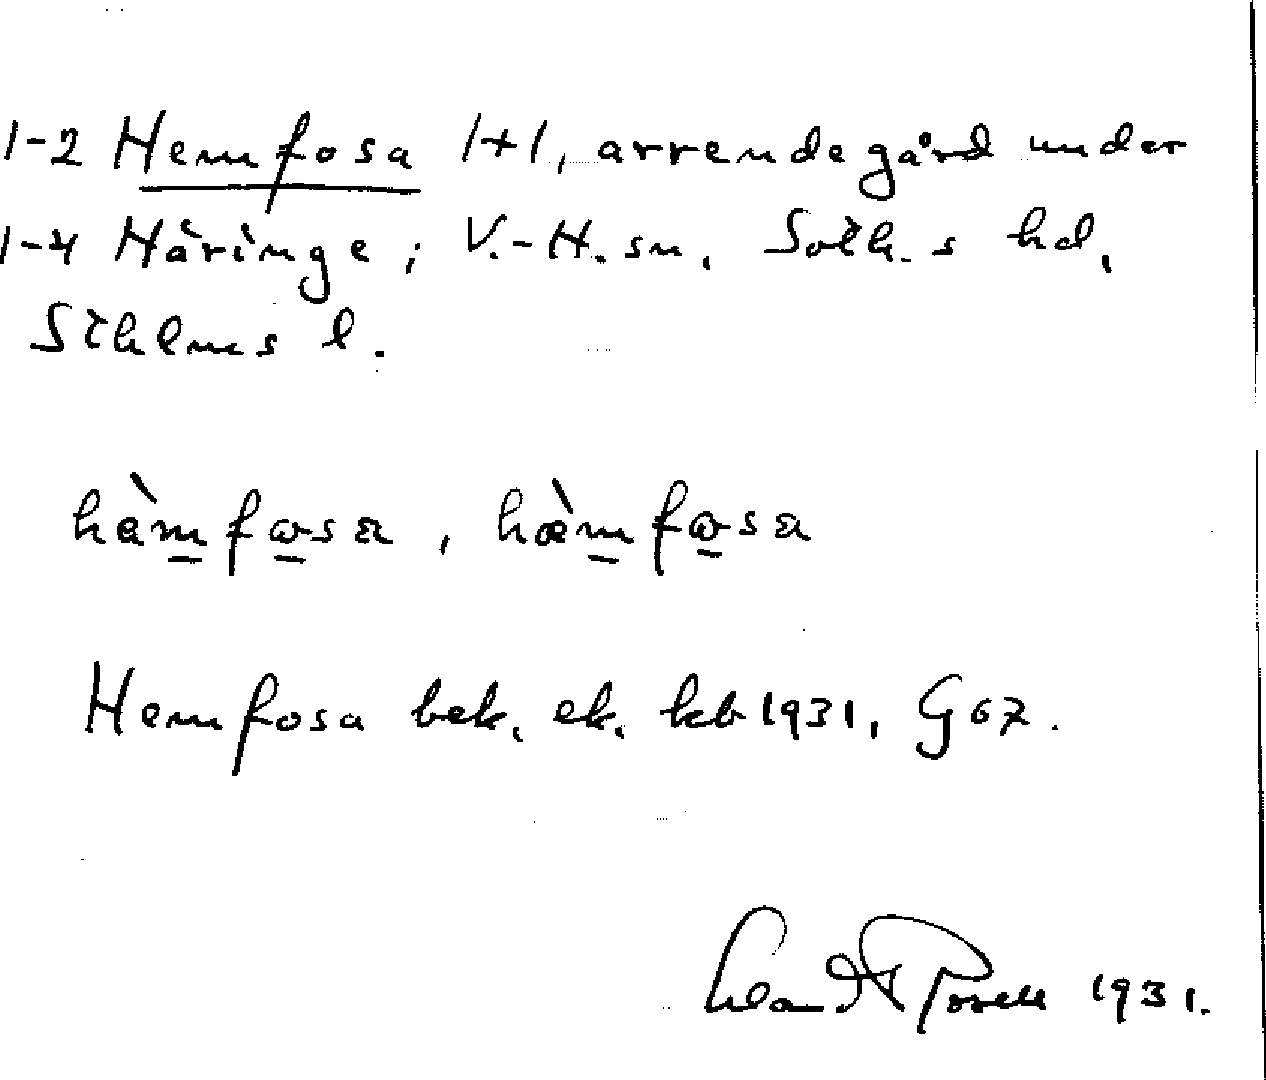 1-2 Hemfosa 1+1, arrendegård under
1-4 Häringe; V.-H. sn, Soth.s hd,
Sthlms l.
hèmfωsa, hæ̀mfωsa
Hemfosa bek. ek. kb 1931, Goz.
1931.